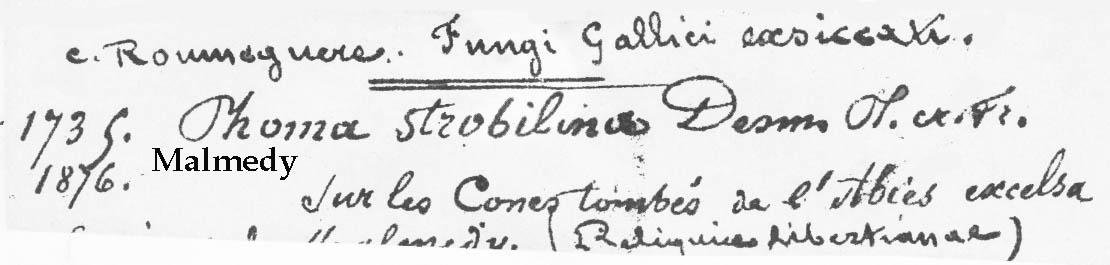 C. Roumeguere. Fungi Gallici exsiccati.
1735. Phoma strobilina Desm. Pl. cr. Fr.
1876. Malmedy
Sur les Cones tombés de l'Abies excelsa
Malmedy. (Reliquiae Libertianae)